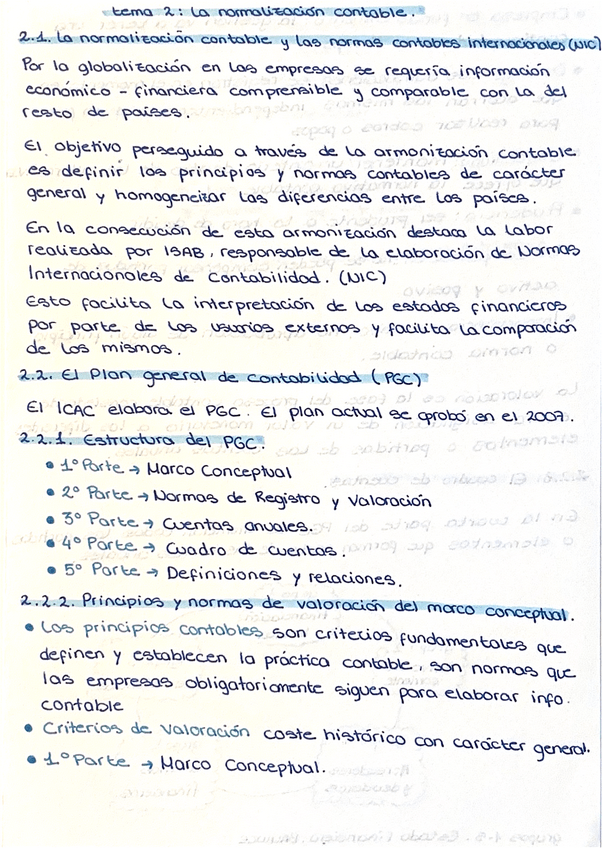 tema 2: La normalización contable.
2.1. La normalización contable y las normas contables internacionales (NIC)
Por la globalización en las empresas se requería información
económico - financiera comprensible y comparable con la del
resto de países.
El objetivo perseguido a través de la armonización contable
es definir los principios y normas contables de carácter
general y homogeneizar las diferencias entre los países.
En la consecución de esta armonización destaca la labor
realizada por ISAB, responsable de la elaboración de Normas
Internacionales de Contabilidad. (NIC)
Esto facilita la interpretación de los estados financieros
por parte de los usuarios externos y facilita la comparación
de los mismos.
2.2. El Plan general de contabilidad (PGC)
El ICAC elabora el PGC. El plan actual se aprobó en el 2007.
2.2.1. Estructura del PGC.
• 1º Parte → Marco Conceptual
• 2º Parte → Normas de Registro y Valoración
• 3º Parte → Cuentas anuales.
• 4º Parte → Cuadro de cuentas.
• 5º Parte → Definiciones y relaciones.
2.2.2. Principios y normas de valoración del marco conceptual.
• Los principios contables son criterios fundamentales que
definen y establecen la práctica contable, son normas que
las empresas obligatoriamente siguen para elaborar info.
contable
• Criterios de valoración coste histórico con carácter general.
• 1º Parte → Marco Conceptual.